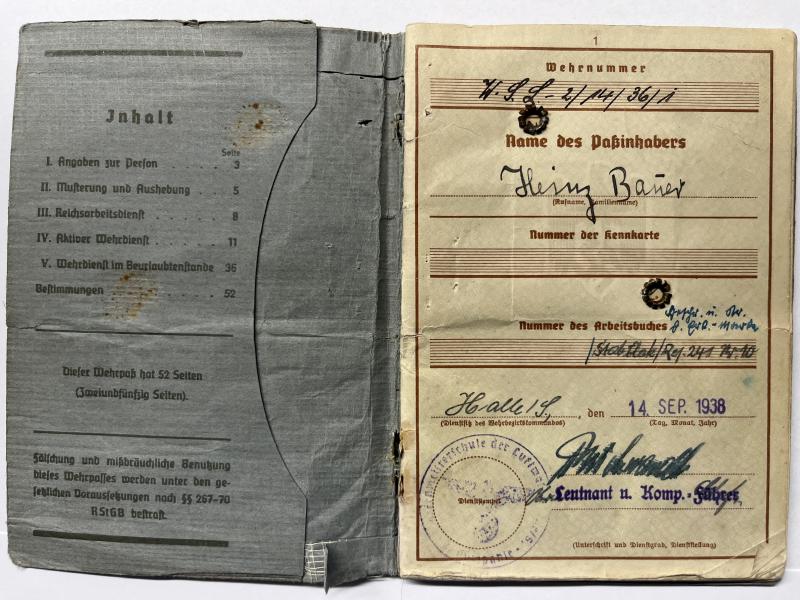 Inhalt
Seite
I. Angaben zur Person . . . . . . 3
II. Musterung und Aushebung . . . . 5
III. Reichsarbeitsdienst . . . . . . . 8
IV. Aktiver Wehrdienst . . . . . . 11
V. Wehrdienst im Beurlaubtenstande 36
Bestimmungen . . . . . . . . 52
Dieser Wehrpaß hat 52 Seiten
(Zweiundfünfzig Seiten).
Fälschung und mißbräuchliche Benutzung
dieses Wehrpasses werden unter den ge-
setzlichen Voraussetzungen nach §§ 267-70
RStGB bestraft.
1
Wehrnummer
W.S.S-2/14/36/1
Name des Paßinhabers
Heinz Bauer
(Rufname, Familienname)
Nummer der Kennkarte
Nummer des Arbeitsbuches
241
Halle/S., den 14. SEP. 1938
(Dienstsitz des Wehrbezirkskommandos) (Tag, Monat, Jahr)
der Luftwaffe
Dienststempel
Leutnant u. Komp.-Führer
(Unterschrift und Dienstgrad, Dienststellung)